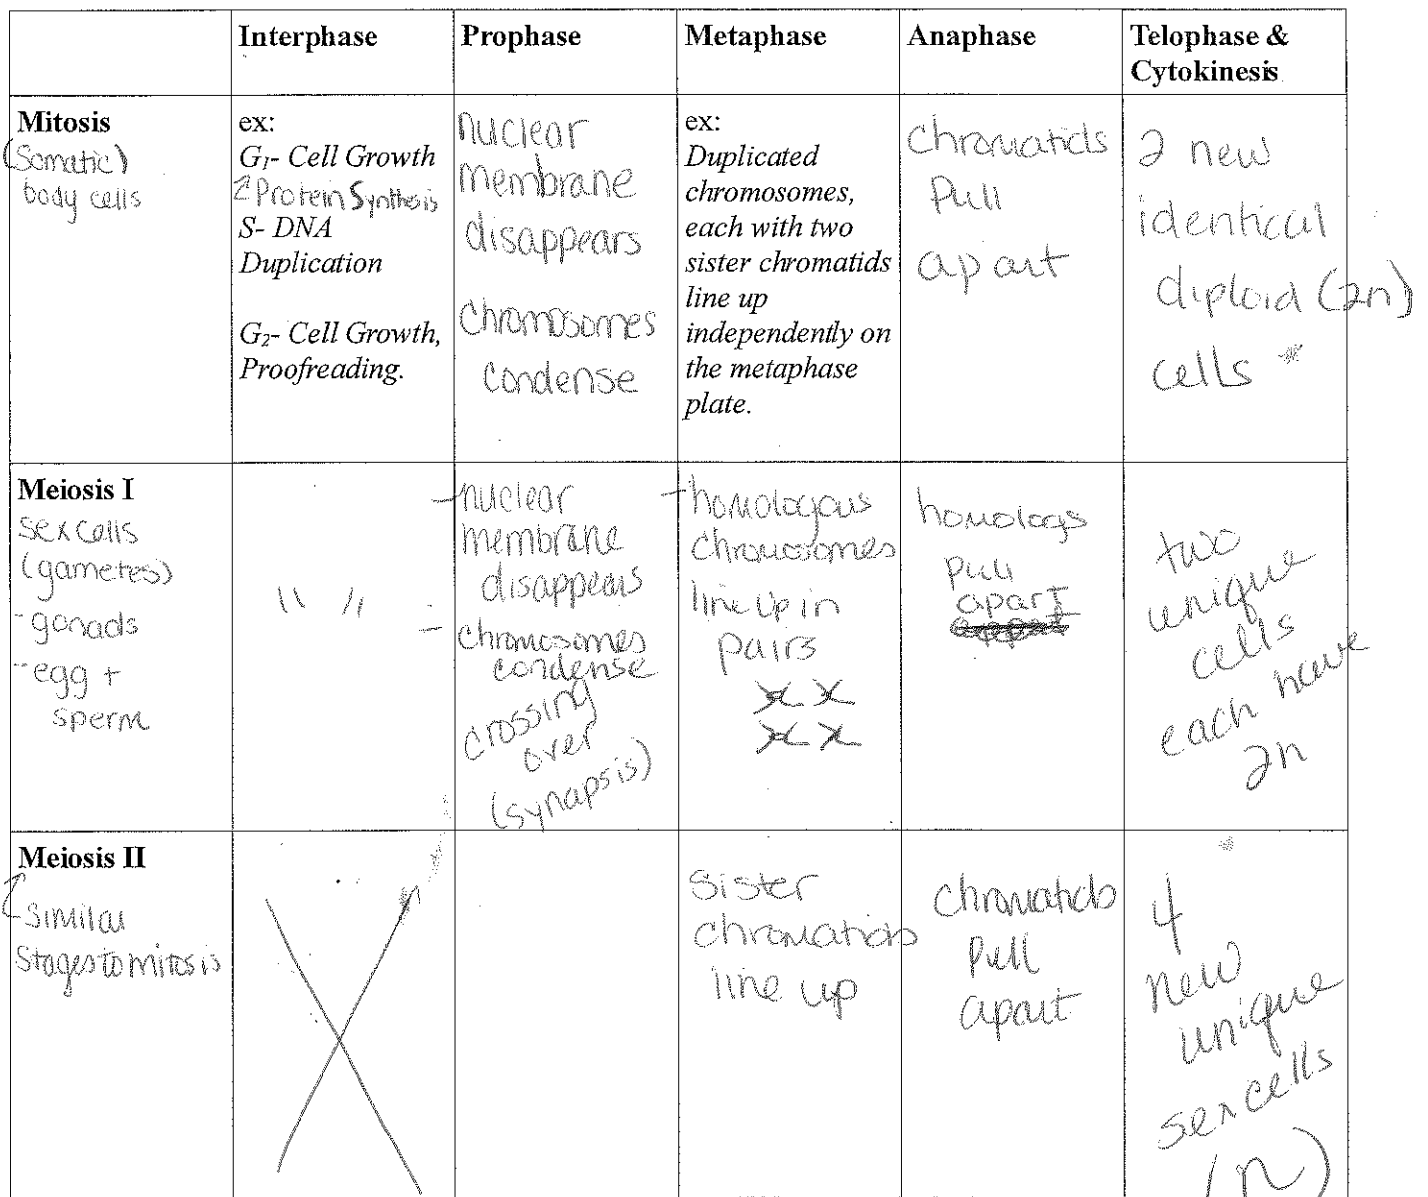 Interphase
Prophase
Metaphase
Anaphase
Telophase &
Cytokinesis
Mitosis
(Somatic)
body cells
ex:
G₁- Cell Growth
Protein Synthesis
S- DNA
Duplication
G₂- Cell Growth,
Proofreading.
nuclear
membrane
disappears
chromosomes
condense
ex:
Duplicated
chromosomes,
each with two
sister chromatids
line up
independently on
the metaphase
plate.
chromatids
Pull
apart
2 new
identical
diploid (2n)
cells *
Meiosis I
sex cells
(gametes)
- gonads
- egg +
sperm
" "
- nuclear
membrane
disappears
- chromosomes
condense
crossing
over
(synapsis)
- homologous
chromosomes
line up in
pairs
homologs
pull
apart
two
unique
cells
each have
2n
Meiosis II
Similar
Stages to mitosis
sister
chromatids
line up
chromatids
pull
apart
4
new
unique
sex cells
(n)